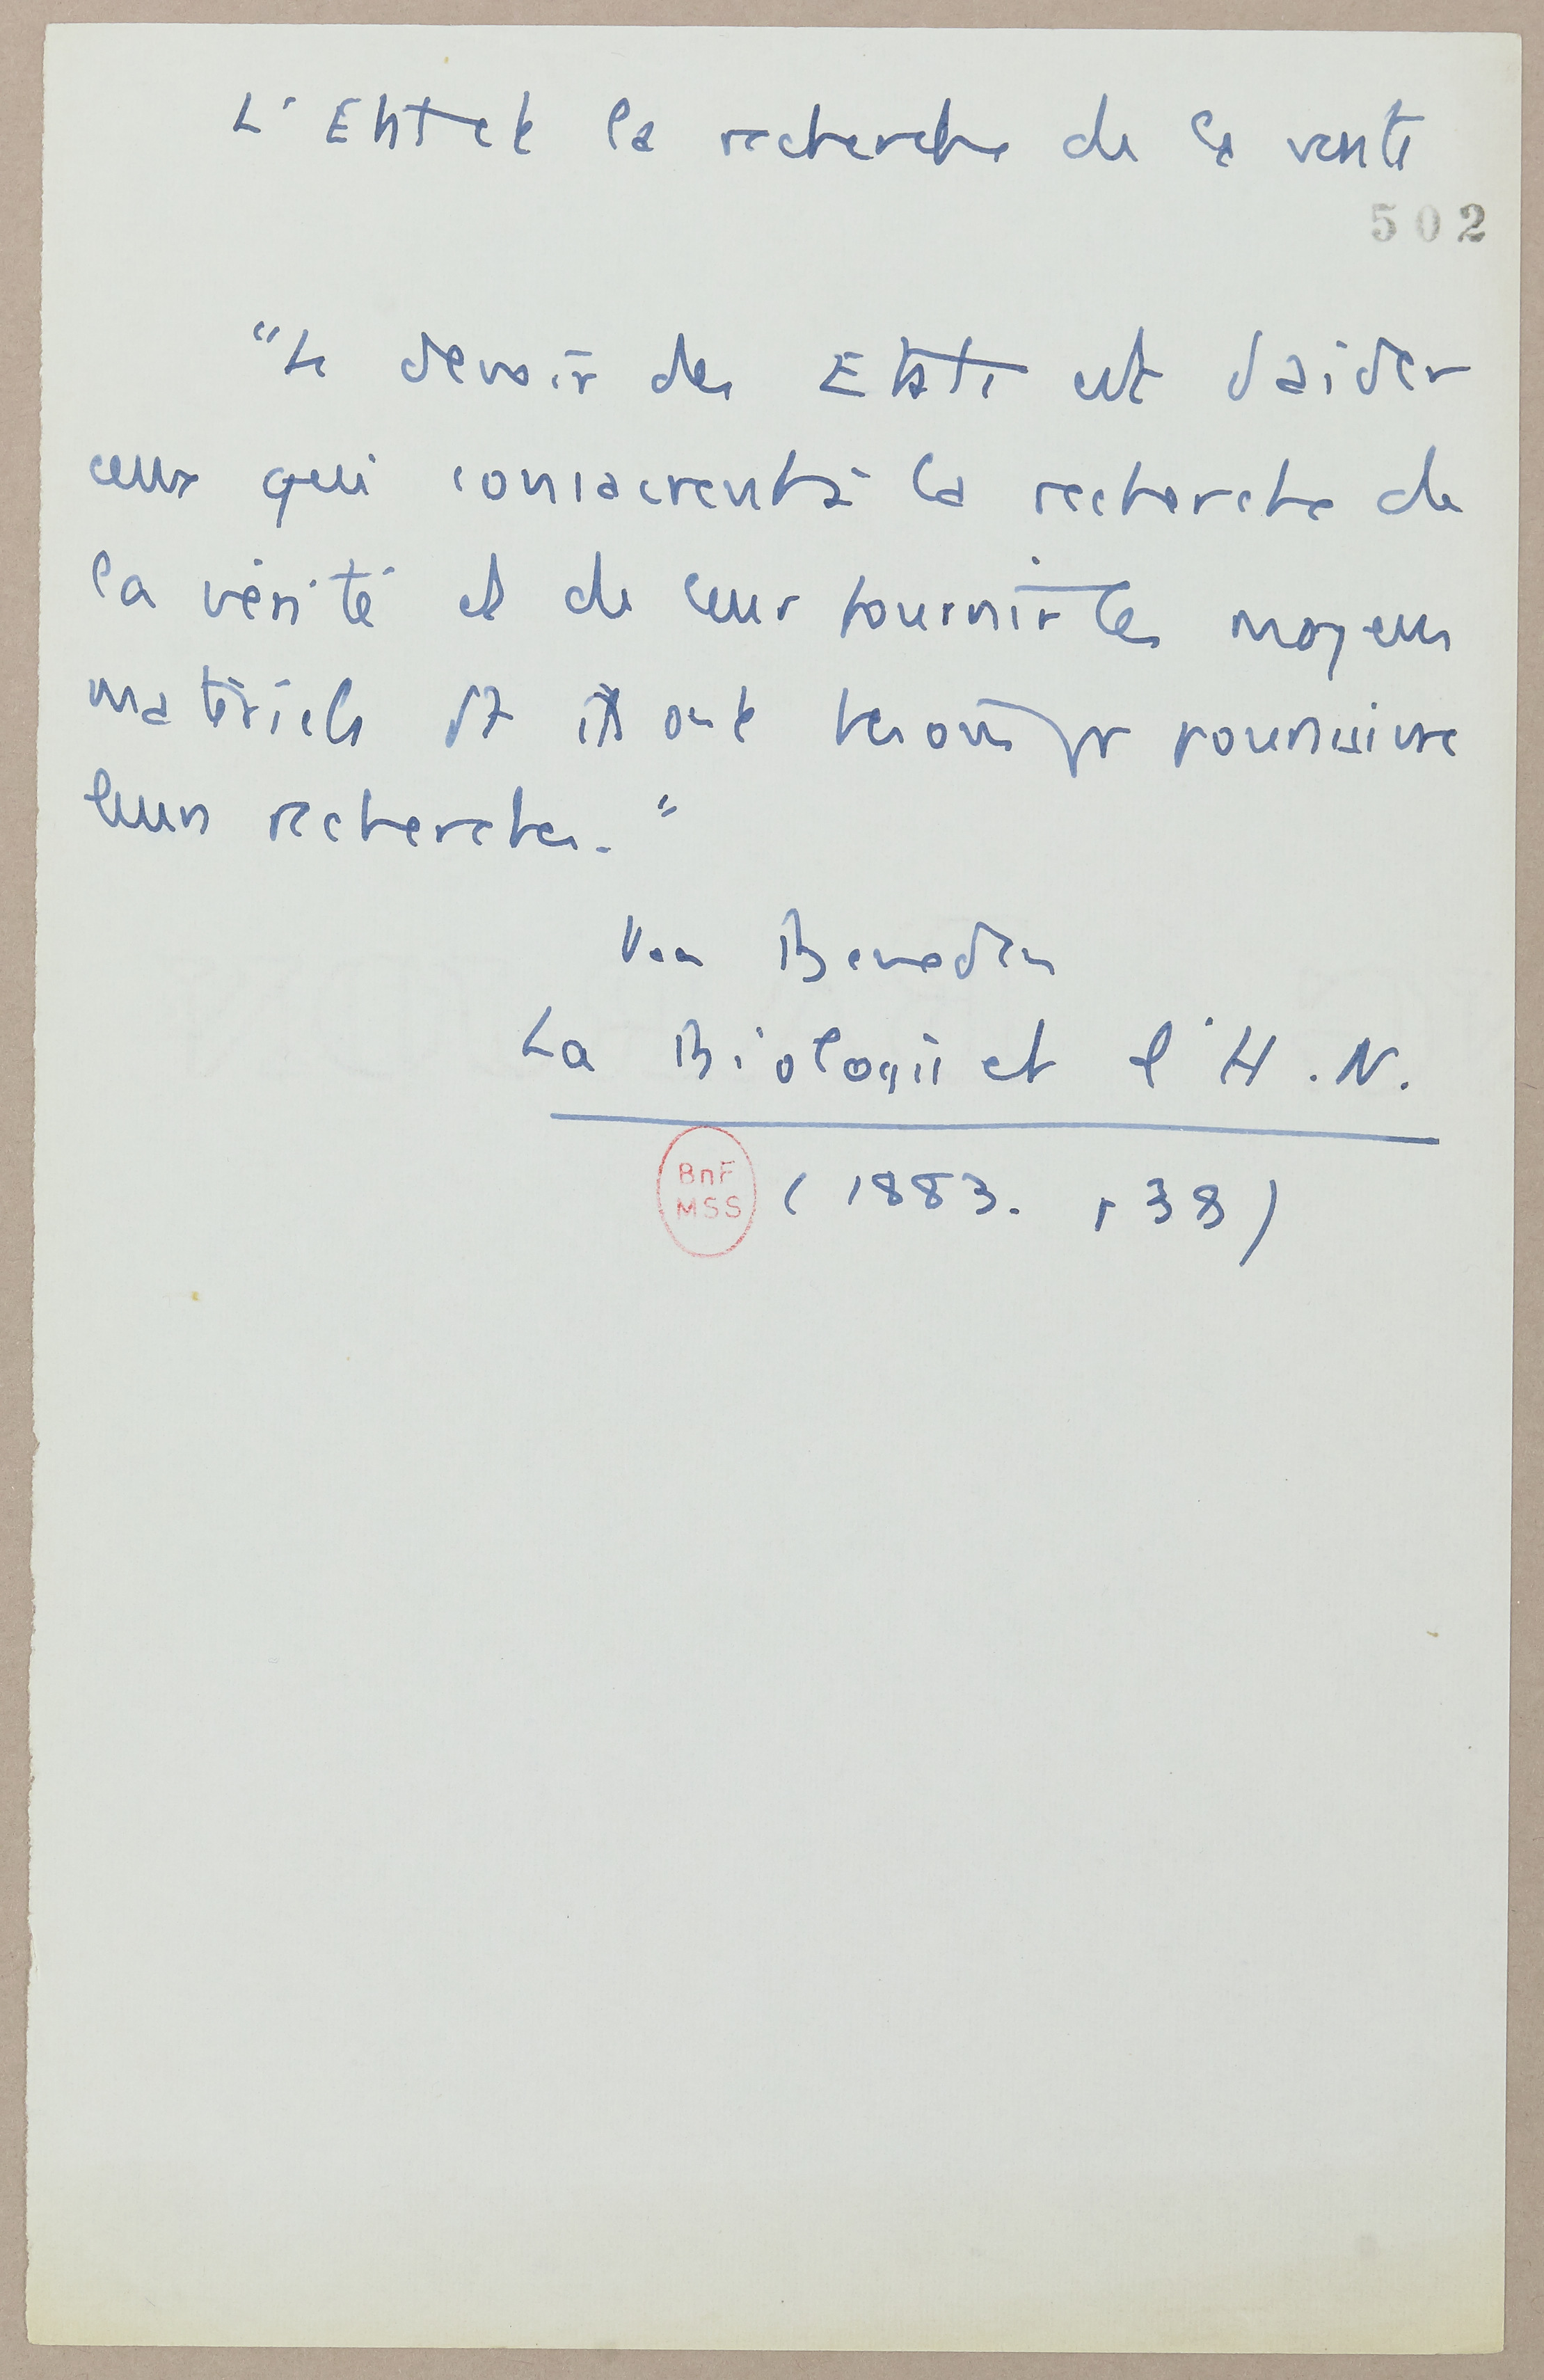 L'Etat et la recherche de la vérité
502
"Le devoir des Etats est d'aider
ceux qui consacrent à la recherche de
la vérité et de leur fournir les moyens
matériels dt ils ont besoin pr poursuivre
leurs recherches."
Van Beneden
La Biologie et l'H.N.
BnF
MSS
(1883. p 38)